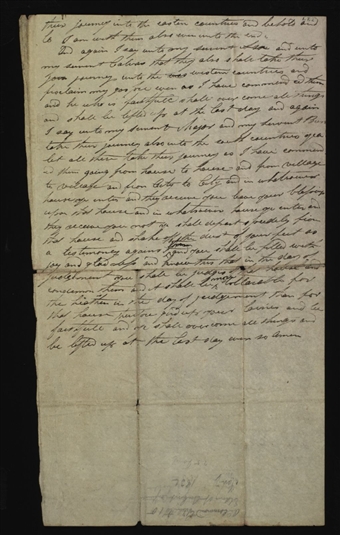 their journey unto the easton countries and behold and
lo I am with them also even unto the end
And again I say unto my servent and unto
my servent Calves that they also shall take their
journey unto the western countries and
proclaim my gospel even as I have commanded them
and he who is faithful shall overcome all things
and shall be lifted up at the last day and again
I say unto my servent Major and my servent
take their journey also unto the countries yea
let all these take their journey as I have commanded
them going from house to house and from village
to village and from City to City and in whatsoever
house ye enter and they receive you leave your blessing
upon that house and in whatsoever house ye enter and
they receive you not ye shall depart speedily from
that house and shake off the dust of your feet as
a testimony against them and you shall be filled with
joy and gladness and know this that in the day of
judgement you shall be judges of that house and
condemn them and it shall be more tolerable for
the heathen in the day of judgement than for
that house therefore gird up your loines and be
faithful and ye shall overcome all things and
be lifted up at the last day even so amen
1832